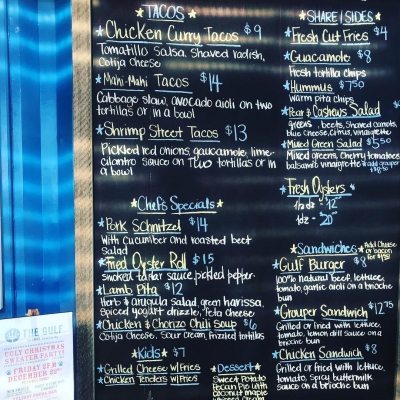 TACOS
Chicken Curry Tacos $9
Tomatillo Salsa, Shaved radish,
Cotija Cheese
Mahi-Mahi Tacos $14
Cabbage slaw, avocado aioli on two
tortillas or in a bowl
Shrimp Street Tacos $13
Pickled red onions, guacamole, lime-
cilantro sauce on Two tortillas or in
a bowl
Chef's Specials
Pork Schnitzel $14
With Cucumber and roasted beet
Salad
Fried Oyster Roll $15
Smoked tartar sauce, pickled pepper
Lamb Pita $12
Herb & arugula salad, green harissa,
Spiced yogurt drizzle, Feta cheese
Chicken & Chorizo Chili Soup $6
Cotija Cheese, Sour Cream, frizzled tortillas
Kids $7
Grilled Cheese w/Fries
Chicken Tenders w/Fries
Dessert
Sweet Potato
Pecan Pie with
coconut maple
SHARE/SIDES
Fresh Cut Fries $4
Guacamole $8
Fresh tortilla chips
Hummus $7.50
Warm pita chips
Pear & Cashews Salad
greens, beets, Shaved carrots,
blue cheese, Citrus vinaigrette
Mixed Green Salad $5.50
Mixed greens, Cherry tomatoes,
balsamic vinaigrette
Fresh Oysters
1/2 dz - $12
1dz - $20
Sandwiches
Add Cheese
or bacon
for $1.50
Gulf Burger $8
100% natural beef, lettuce,
tomato, garlic aioli on a brioche
bun
Grouper Sandwich $12.75
Grilled or fried with lettuce,
tomato, lemon dill sauce on a
brioche bun
Chicken Sandwich $8
Grilled or fried with lettuce,
tomato, Spicy buttermilk
sauce on a brioche bun
THE GULF
UGLY CHRISTMAS
SWEATER PARTY!
FRIDAY
DECEMBER